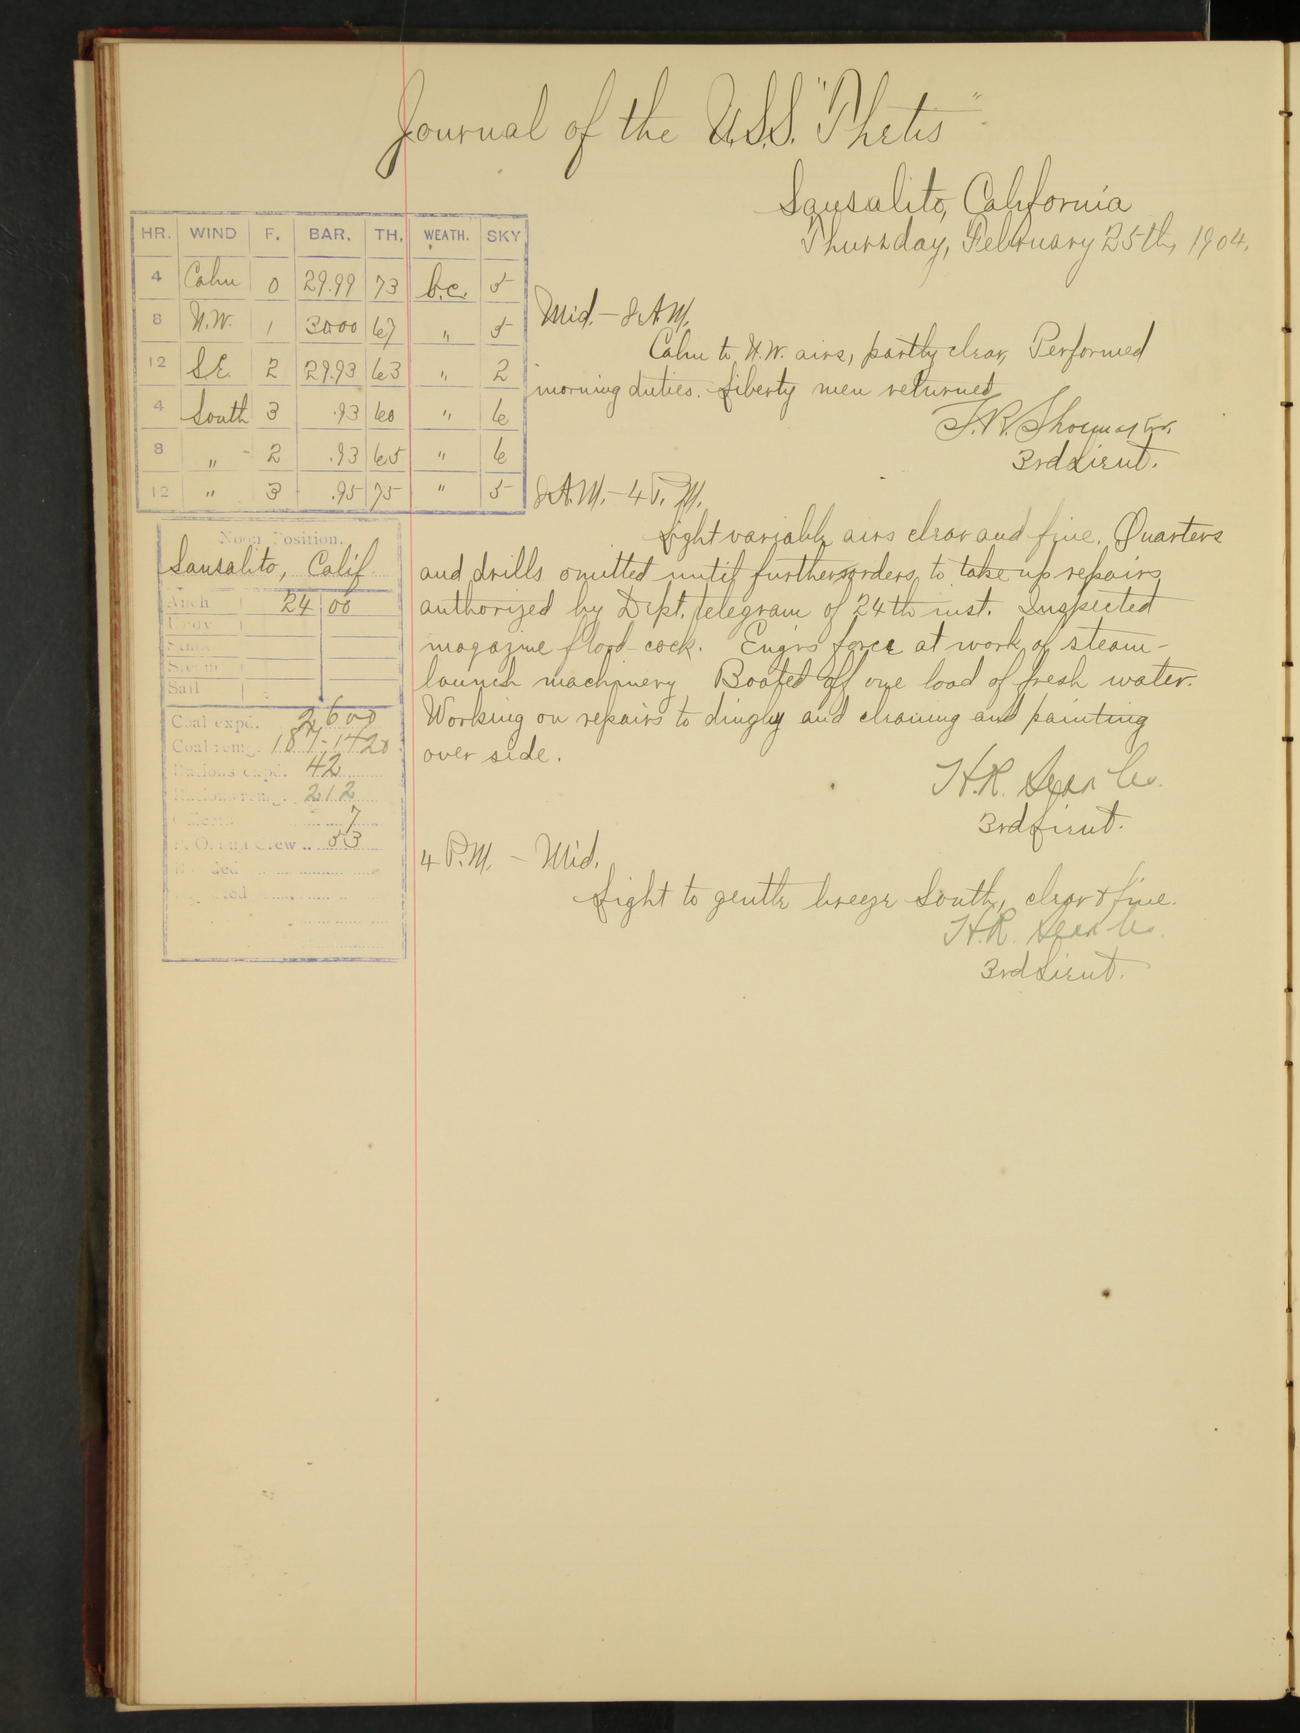 Journal of the U.S.S. "Thetis"
Sausalito, California
Thursday, February 25th, 1904.
HR. WIND F. BAR. TH. WEATH. SKY
4 Calm 0 29.99 73 b.c. 5
8 N.W. 1 30.00 67 " 5
12 S.E. 2 29.93 63 " 2
4 South 3 .93 60 " 6
8 " 2 .93 65 " 6
12 " 3 .95 75 " 5
Mid. - 8 A.M.
Calm to N.W. airs, partly clear, Performed
morning duties. Liberty men returned
3rd Lieut.
8 A.M. - 4 P.M.
Light variable airs clear and fine. Quarters
and drills omitted until further orders, to take up repairs
authorized by Dept. telegram of 24th inst. Inspected
magazine flood-cock. Eng'rs force at work of steam-
launch machinery Boated off one load of fresh water.
Working on repairs to dinghy and cleaning and painting
over side.
H.R. Searles.
3rd Lieut.
4 P.M. - Mid.
Light to gentle breeze South, clear & fine.
H.R. Searles.
3rd Lieut.
Noon Position.
Sausalito, Calif.
Anch 24 00
Sail
Coal expd. 2600
Coal remg. 187-1420
Rations expd. 42
Rations remg. 212
7
Crew .. 53